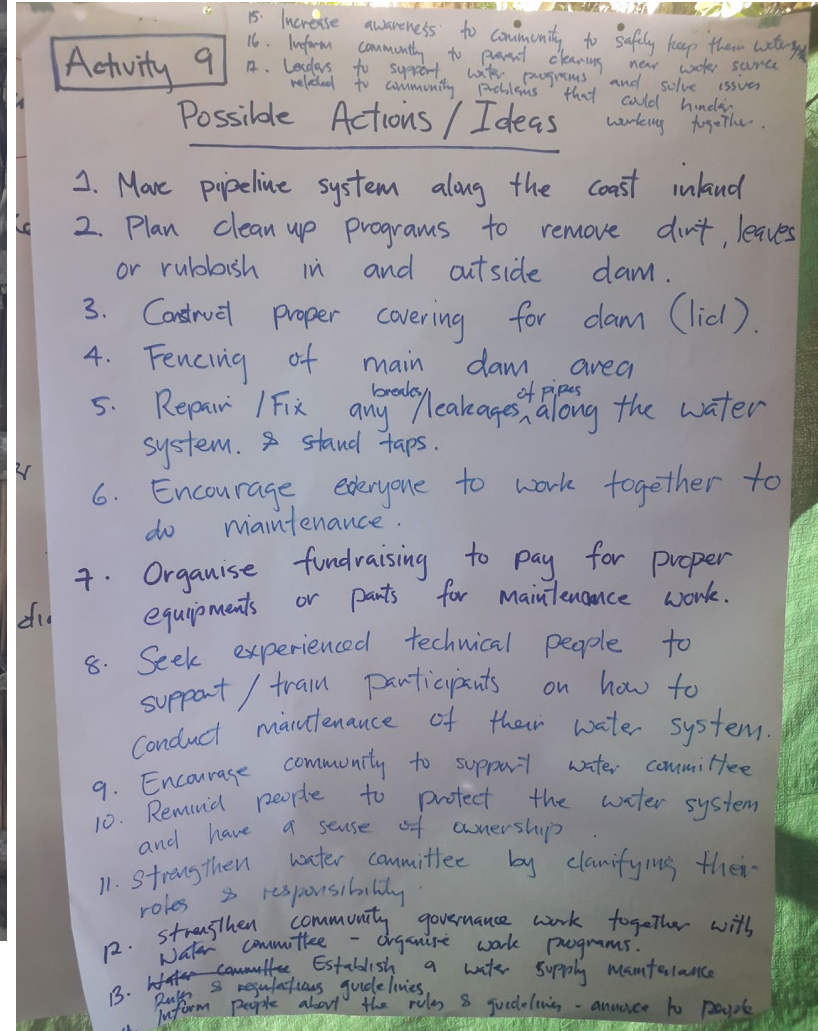 15. Increase awareness to community to safely keep their water
16. Inform community to prevent clearing near water source
17. Leaders to support water programs and solve issues
related to community problems that could hinder
working together.
Activity 9
Possible Actions / Ideas
1. Move pipeline system along the coast inland
2. Plan clean up programs to remove dirt, leaves
or rubbish in and outside dam.
3. Construct proper covering for dam (lid).
4. Fencing of main dam area
5. Repair / Fix any breaks/leakages of pipes along the water
system. & stand taps.
6. Encourage everyone to work together to
do maintenance.
7. Organise fundraising to pay for proper
equipments or parts for maintenance work.
8. Seek experienced technical people to
support / train participants on how to
conduct maintenance of their water system.
9. Encourage community to support water committee
10. Remind people to protect the water system
and have a sense of ownership.
11. Strengthen water committee by clarifying their
roles & responsibility.
12. strengthen community governance work together with
Water committee - organise work programs.
13. Water committee Establish a water supply maintenance
Rules & regulations guidelines,
Inform people about the rules & guidelines - to people